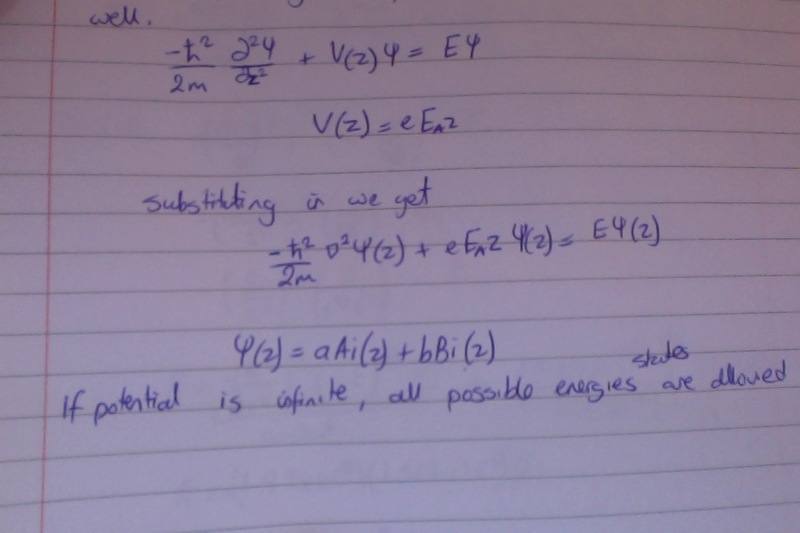 well.
-ħ²/2m ∂²Ψ/∂z² + V(z)Ψ = EΨ
V(z) = eE_A z
Substituting in we get
-ħ²/2m ∇²Ψ(z) + eE_A z Ψ(z) = EΨ(z)
Ψ(z) = aAi(z) + bBi(z)
states
If potential is infinite, all possible energies are allowed